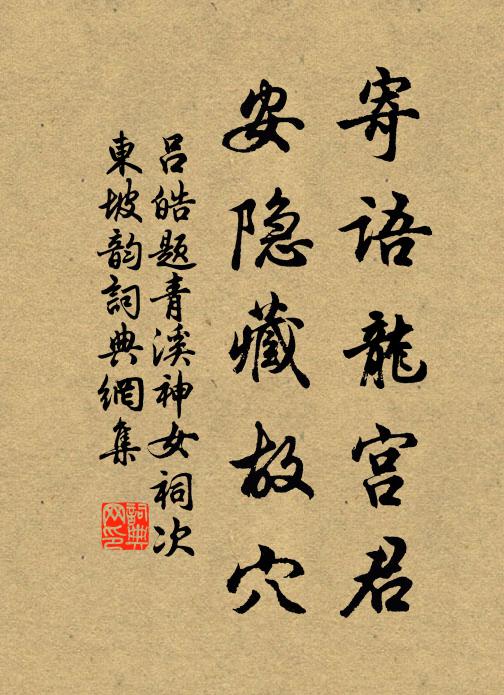 寄语龍宫君
安隐藏故穴
吕皓题青溪神女祠次
東坡韵詞典網集
詞典网印